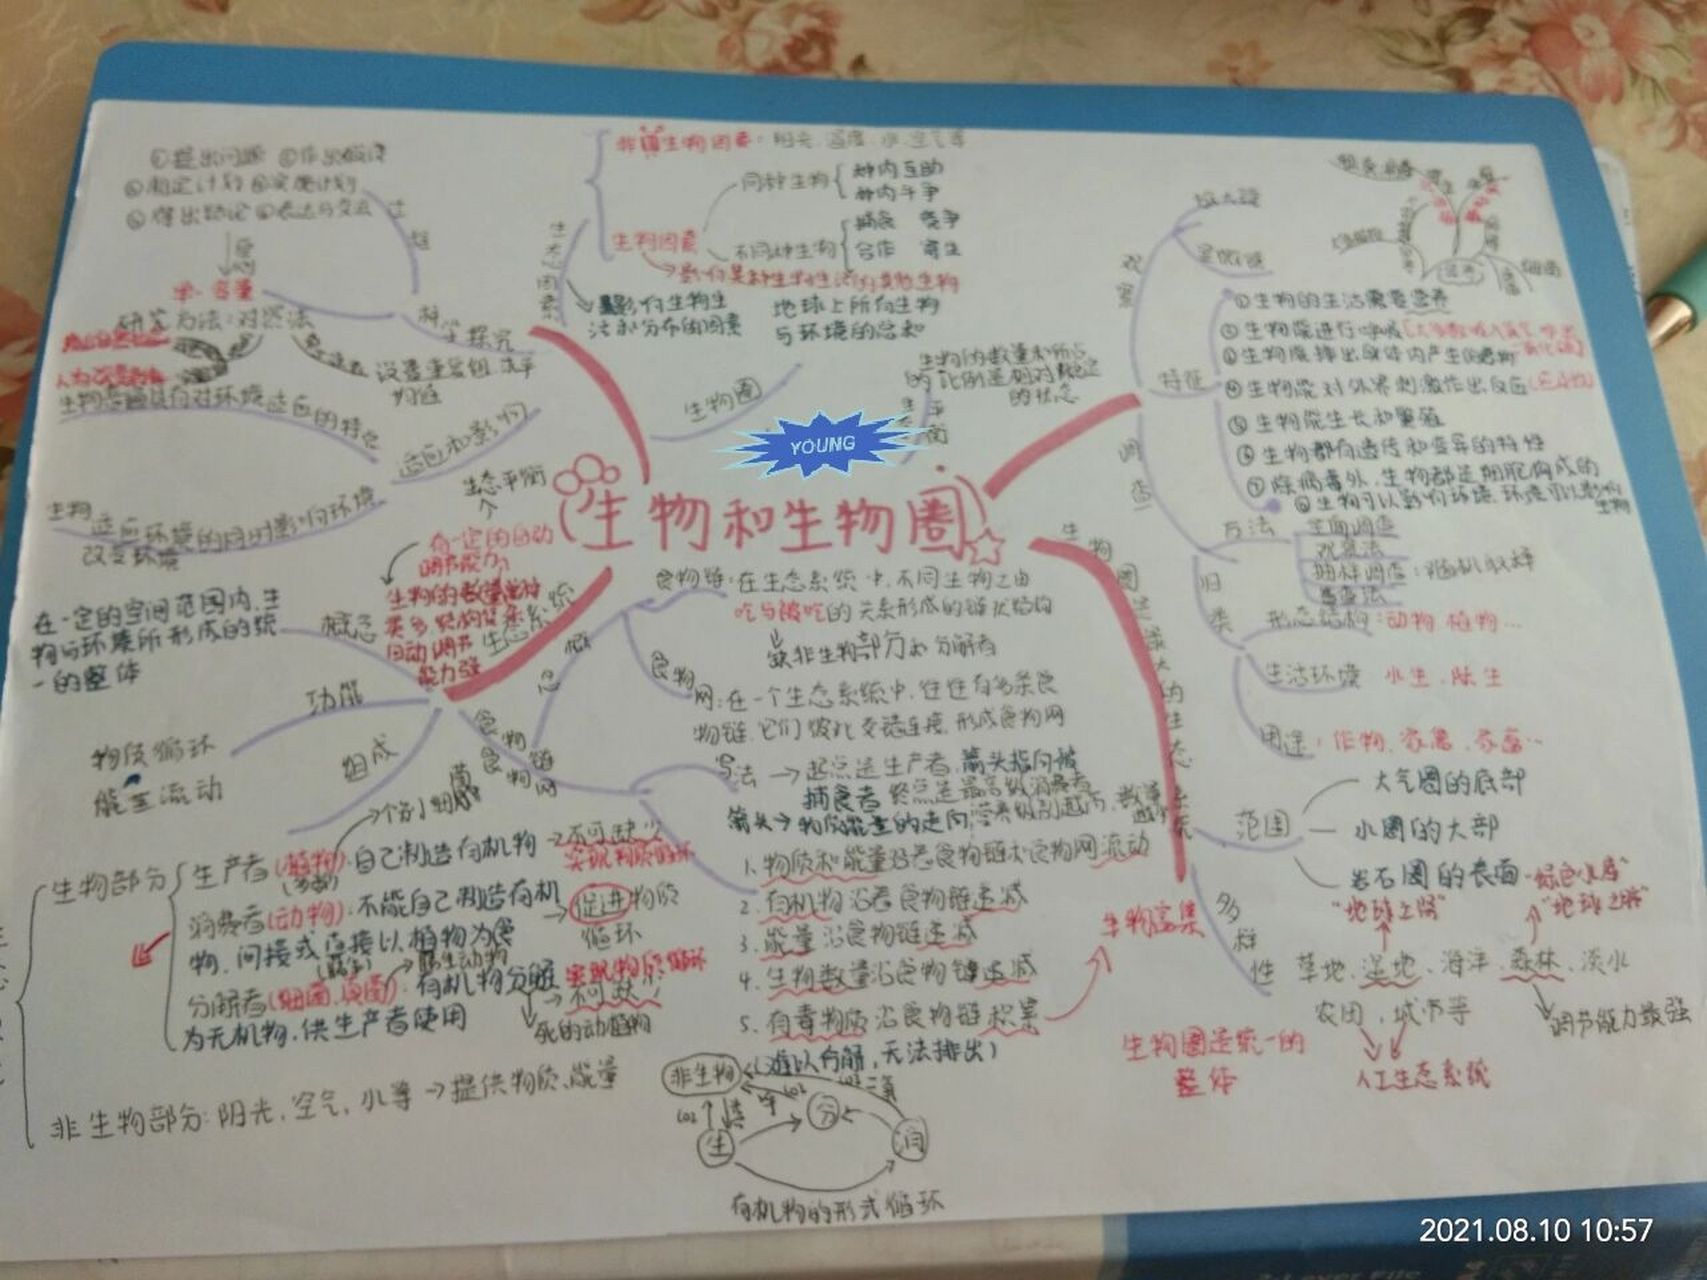 生物和生物圈
YOUNG
①提出问题 ②作出假设
③制定计划 ④实施计划
⑤得出结论 ⑥表达与交流
单一变量
研究方法:对照法
科学探究
设置重复组
适应和影响
生物
适应环境的同时影响环境
改变环境
生态因素
非生物因素:阳光、温度、水、空气等
同种生物
种内互助
种内斗争
生物因素
不同种生物
捕食 竞争
合作 寄生
影响某种生物生活的其他生物
影响生物生
活和分布的因素
地球上所有生物
与环境的总和
生物圈
生物的数量和所占
的比例是相对稳定
的状态
观察
放大镜
显微镜
特征
①生物的生活需要营养
②生物能进行呼吸
③生物能排出身体内产生的废物
④生物能对外界刺激作出反应(应激性)
⑤生物能生长和繁殖
⑥生物都有遗传和变异的特性
⑦除病毒外,生物都是细胞构成的
⑧生物可以影响环境,环境可以影响
生物
调查
方法
全面调查
观察法
抽样调查:随机取样
归类
形态结构:动物 植物…
生活环境 水生、陆生
用途:作物、家禽、家畜…
生物圈是最大的生态系统
范围
大气圈的底部
水圈的大部
岩石圈的表面
"绿色水库"
"地球之肺"
"地球之肾"
多样性
草地、湿地、海洋、森林、淡水
农田、城市等
调节能力最强
人工生态系统
生物圈是统一的
整体
生态系统
生态平衡
有一定的自动
调节能力
生物的数量
自动调节
能力强
概念
在一定的空间范围内,生
物与环境所形成的统
一的整体
功能
物质循环
能量流动
组成
生物部分
生产者(植物):自己制造有机物→不可缺少
实现物质循环
消费者(动物):不能自己制造有机
物,间接或直接以植物为食
促进物质
循环
分解者(细菌、真菌):有机物分解
为无机物,供生产者使用
实现物质循环
不可缺少
死的动植物
非生物部分:阳光、空气、水等→提供物质、能量
食物链
食物网
概念
食物链:在生态系统中,不同生物之由
吃与被吃的关系形成的链状结构
缺非生物部分和分解者
食物
网:在一个生态系统中,往往有多条食
物链,它们彼此交错连接,形成食物网
写法→起点是生产者,箭头指向被
捕食者 终点是最高级消费者
箭头→物质能量的走向
1.物质和能量沿着食物链和食物网流动
2.有机物沿着食物链递减
3.能量沿食物链递减
4.生物数量沿食物链递减
5.有毒物质沿食物链积累
(难以分解,无法排出)
生物富集
非生物
生
分
消
有机物的形式循环
2021.08.10 10:57